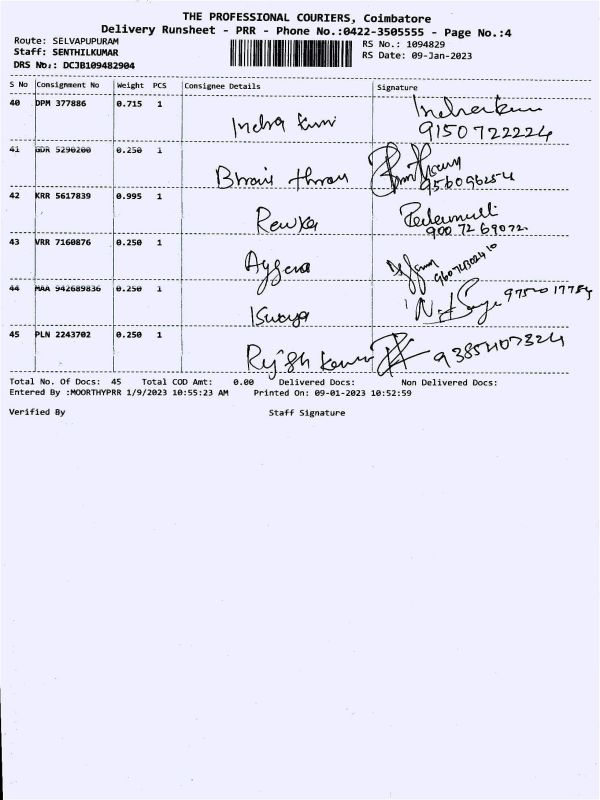 THE PROFESSIONAL COURIERS, Coimbatore
Delivery Runsheet - PRR - Phone No.:0422-3505555 - Page No.:4
Route: SELVAPUPURAM
RS No.: 1094829
Staff: SENTHILKUMAR
RS Date: 09-Jan-2023
DRS No.: DCJB109482904
S No Consignment No Weight PCS Consignee Details Signature
40 DPM 377886 0.715 1 Indra
9150722224
41 GDR 5290200 0.250 1
956096254
42 KRR 5617839 0.995 1
9007269072
43 VRR 7160876 0.250 1
44 MAA 942689836 0.250 1
45 PLN 2243702 0.250 1
Total No. Of Docs: 45 Total COD Amt: 0.00 Delivered Docs: Non Delivered Docs:
Entered By :MOORTHYPRR 1/9/2023 10:55:23 AM Printed On: 09-01-2023 10:52:59
Verified By Staff Signature